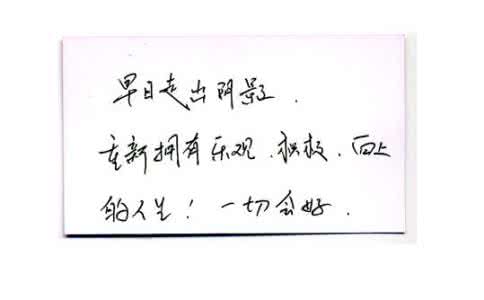 早日走出阴影.
重新拥有乐观、积极、向上
的人生！一切会好.